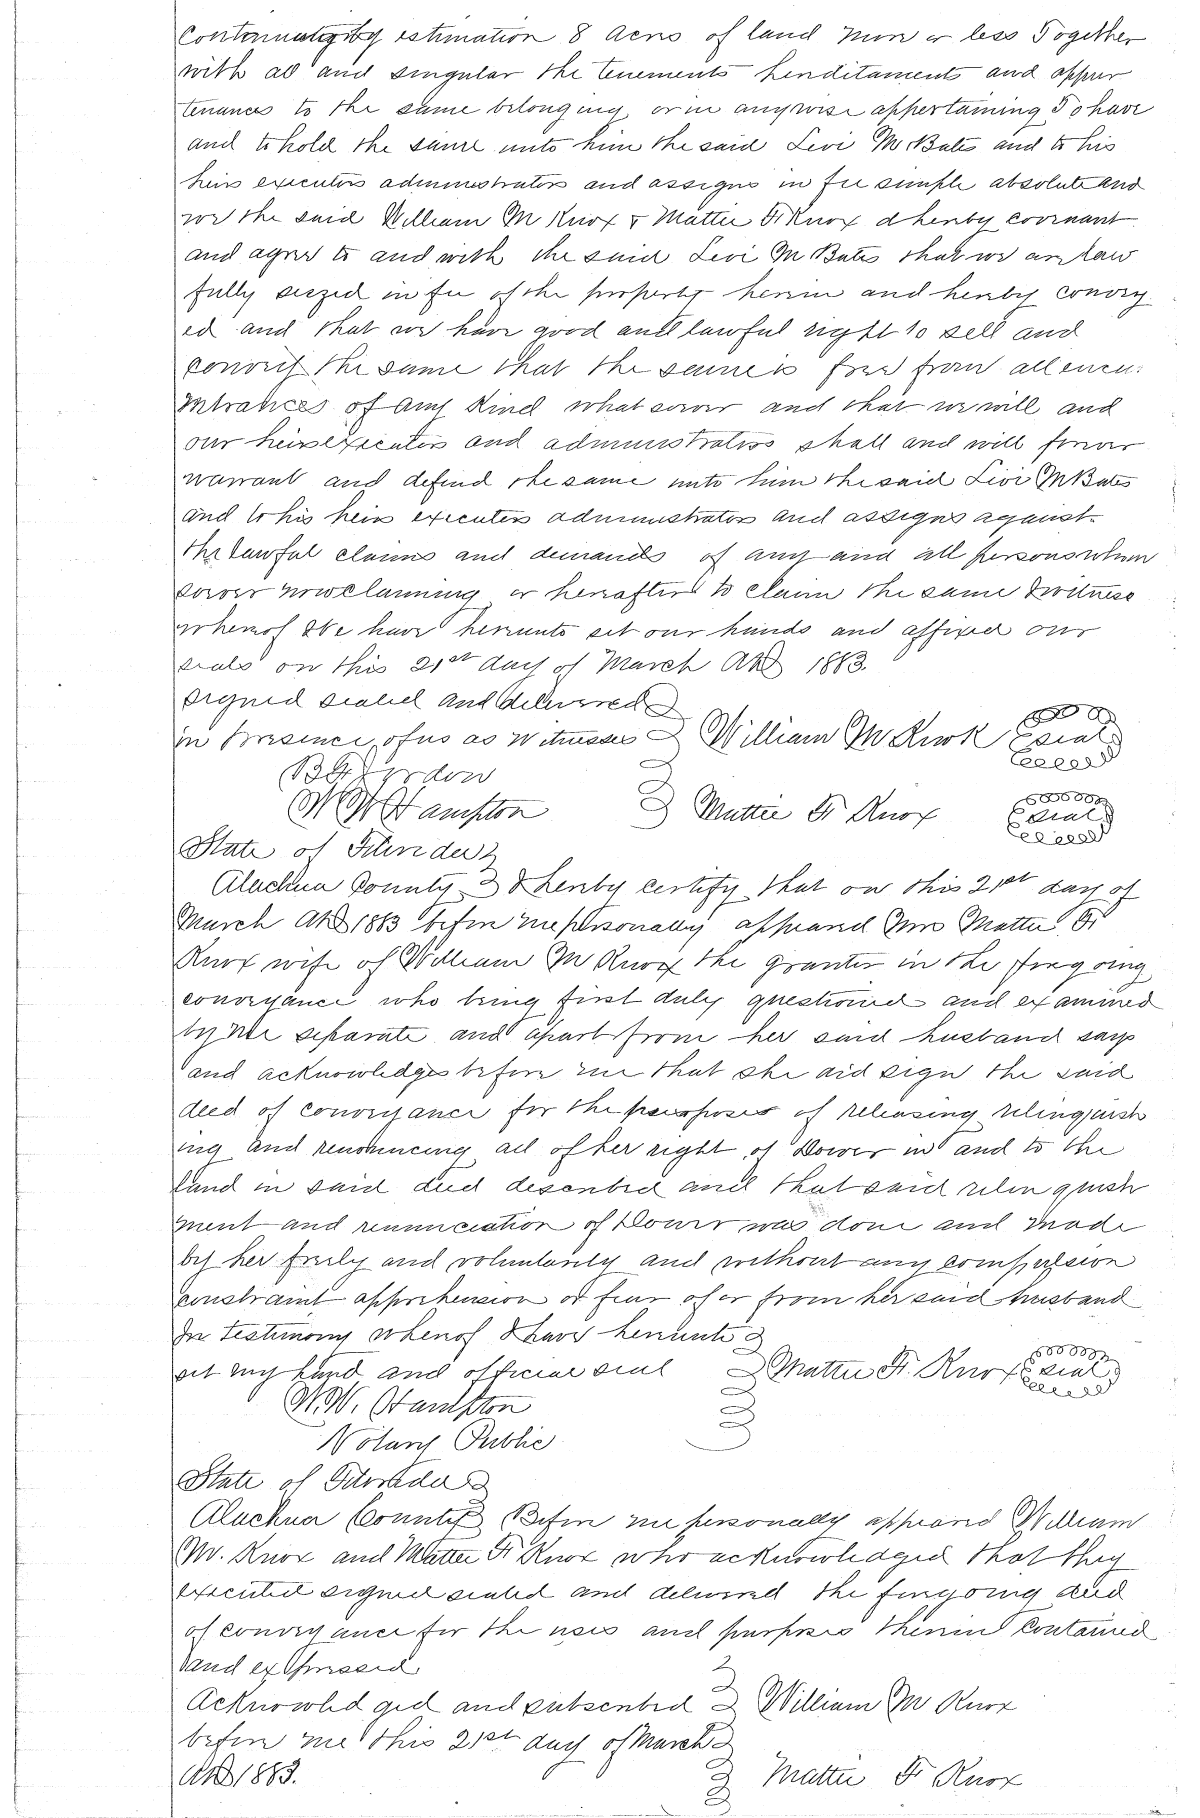 Containing by estimation 8 Acres of land more or less Together
with all and singular the tenements herditaments and appur
tenances to the same belonging or in anywise appertaining To have
and to hold the same unto him the said Levi M Bates and to his
heirs executors administrators and assigns in fee simple absolute And
we the said William M Knox & Mattie F Knox d hereby covenant
and agree to and with the said Levi M Bates that we are law
fully seized in fee of the property herein and hereby convey
ed and that we have good and lawful right to sell and
convey the same that the same is free from all encu
mbrances of any kind whatsoever and that we will and
our heirs executors and administrators shall and will forever
warrant and defend the same unto him the said Levi M Bates
and to his heirs executors administrators and assigns against
the lawful claims and demands of any and all persons whom
soever now claiming or hereafter to claim the same In witness
whereof We have hereunto set our hands and affixed our
seals on this 21st day of March AD 1883.
Signed sealed and delivered
in Presence of us as Witnesses William M Knox Seal
B G Jordon
W W Hampton Mattie F Knox Seal
State of Florida
Alachua County I hereby certify that on this 21st day of
March AD 1883 before me personally appeared Mrs Mattie F
Knox wife of William M Knox the grantor in the foregoing
conveyance who being first duly questioned and examined
by me separate and apart from her said husband says
and acknowledges before me that she did sign the said
deed of conveyance for the purposes of releasing relinquish
ing and renouncing all of her right of Dower in and to the
land in said deed described and that said relinquish
ment and renunciation of Dower was done and made
by her freely and voluntarily and without any compulsion
constraint apprehension or fear of or from her said husband
In testimony whereof I have hereunto
set my hand and official seal Mattie F. Knox Seal
W.W. Hampton
Notary Public
State of Florida
Alachua County Before me personally appeared William
M. Knox and Mattie F Knox who acknowledged that they
executed signed sealed and delivered the foregoing deed
of conveyance for the uses and purposes therein contained
and expressed
Acknowledged and subscribed William M Knox
before me this 21st day of March
AD 1883. Mattie F Knox